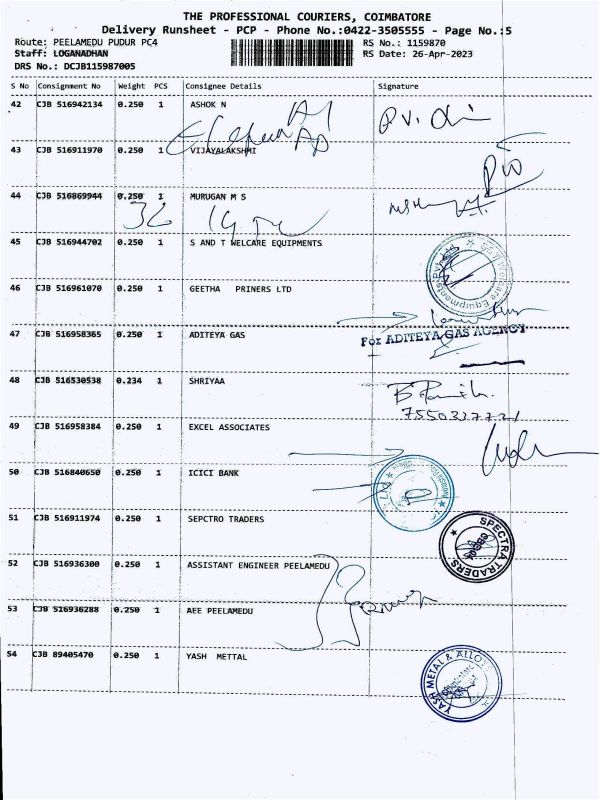 THE PROFESSIONAL COURIERS, COIMBATORE
Delivery Runsheet - PCP - Phone No.:0422-3505555 - Page No.:5
Route: PEELAMEDU PUDUR PC4 RS No.: 1159870
Staff: LOGANADHAN RS Date: 26-Apr-2023
DRS No.: DCJB115987005
S No Consignment No Weight PCS Consignee Details Signature
42 CJB 516942134 0.250 1 ASHOK N
43 CJB 516911970 0.250 1 VIJAYALAKSHMI
44 CJB 516869944 0.250 1 MURUGAN M S
45 CJB 516944702 0.250 1 S AND T WELCARE EQUIPMENTS
46 CJB 516961070 0.250 1 GEETHA PRINERS LTD
47 CJB 516958365 0.250 1 ADITEYA GAS
For ADITEYA GAS AGENCY
48 CJB 516530538 0.234 1 SHRIYAA
49 CJB 516958384 0.250 1 EXCEL ASSOCIATES
50 CJB 516840650 0.250 1 ICICI BANK
51 CJB 516911974 0.250 1 SEPCTRO TRADERS
SPECTRA TRADERS
52 CJB 516936300 0.250 1 ASSISTANT ENGINEER PEELAMEDU
53 CJB 516936288 0.250 1 AEE PEELAMEDU
54 CJB 89405470 0.250 1 YASH METTAL
YASH METAL & ALLOYS